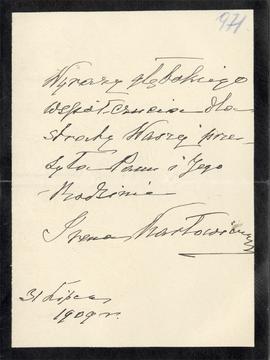 971.
Wyrazy głębokiego
współczucia dla
straty Waszej prze-
syła Panu i Jego
Rodzinie
Irena Karłowicz
31 Lipca
1909 r.